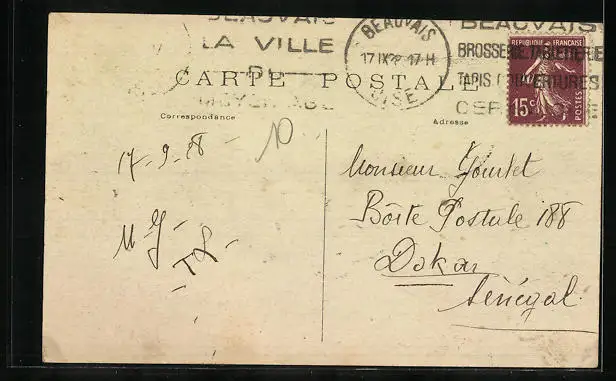 BEAUVAIS
LA VILLE
DU
MOYEN AGE
BEAUVAIS
17 IX 28 17-H
OISE
BEAUVAIS
BROSSERIE TABLETTERIE
TAPIS COUVERTURES
REPUBLIQUE FRANÇAISE
15c
POSTES
CARTE POSTALE
Correspondance
Adresse
10
17-9-28
Monsieur Gourlet
Boite Postale 188
Dakar
Sénégal